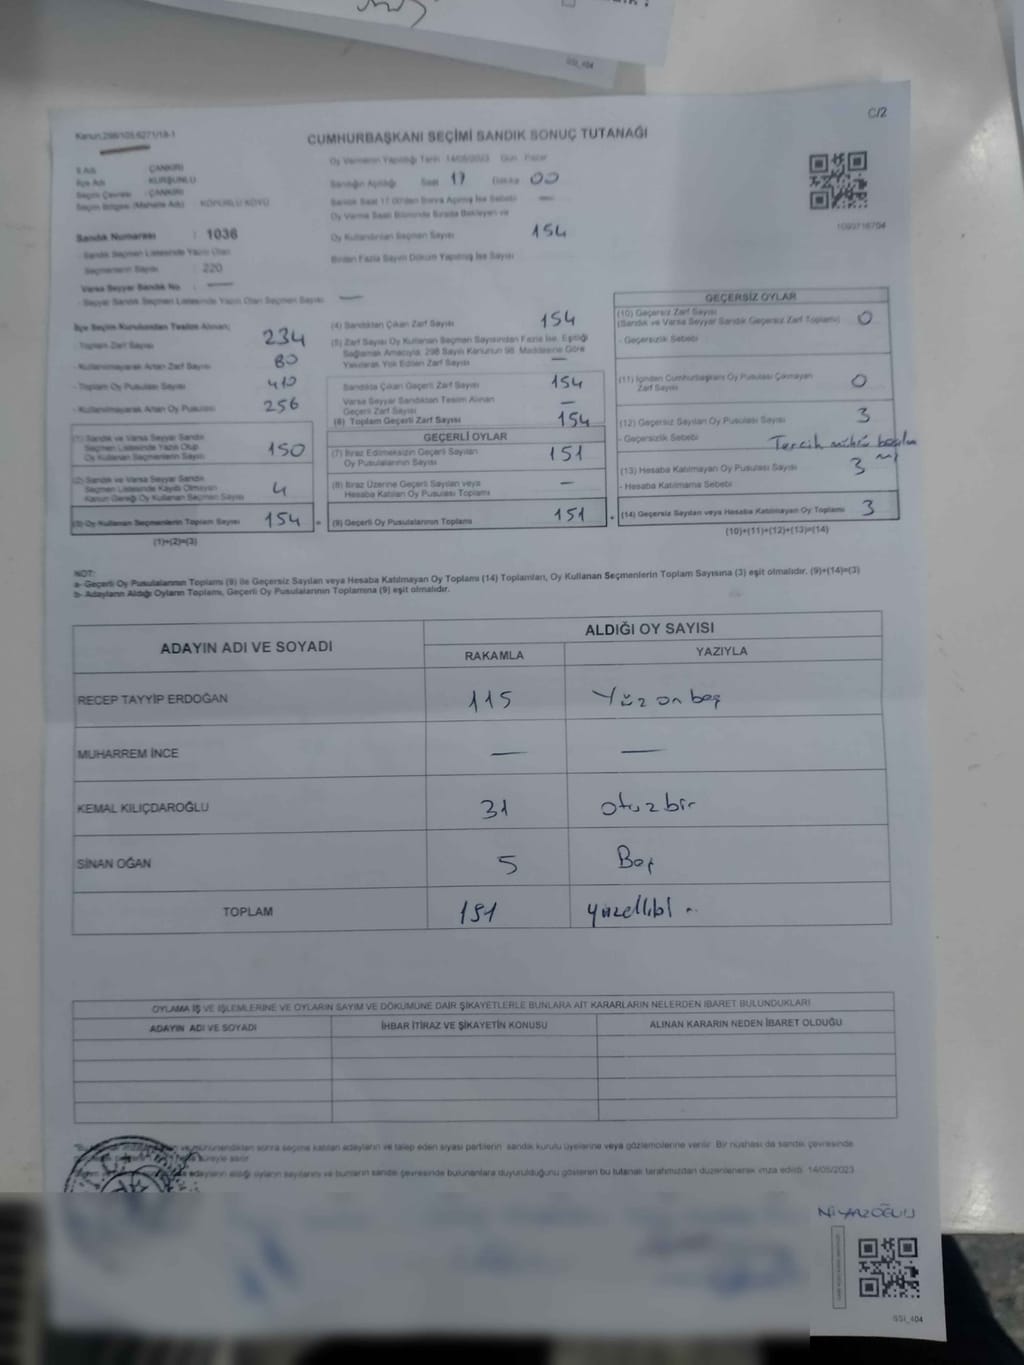 SSI_404
C/2
Kanun:298/105,6271/18-1
CUMHURBAŞKANI SEÇİMİ SANDIK SONUÇ TUTANAĞI
İli Adı : ÇANKIRI
İlçe Adı : KURŞUNLU
Seçim Çevresi : ÇANKIRI
Seçim Bölgesi (Mahalle Adı) : KÖPÜRLÜ KÖYÜ
Sandık Numarası : 1036
Sandık Seçmen Listesinde Yazılı Olan
Seçmenlerin Sayısı : 220
Varsa Seyyar Sandık No : —
- Seyyar Sandık Seçmen Listesinde Yazılı Olan Seçmen Sayısı : —
Oy Vermenin Yapıldığı Tarih 14/05/2023 Gün Pazar
Sandığın Açıldığı Saat 17 Dakika 00
Sandık Saat 17.00'den Sonra Açılmış İse Sebebi —
Oy Verme Saati Bitiminde Sırada Bekleyen ve
Oy Kullandırılan Seçmen Sayısı 154
Birden Fazla Sayım Döküm Yapılmış İse Sayısı
1090716704
İlçe Seçim Kurulundan Teslim Alınan;
- Toplam Zarf Sayısı 234
- Kullanılmayarak Artan Zarf Sayısı 80
- Toplam Oy Pusulası Sayısı 410
- Kullanılmayarak Artan Oy Pusulası 256
(1) Sandık ve Varsa Seyyar Sandık
Seçmen Listesinde Yazılı Olup
Oy Kullanan Seçmenlerin Sayısı 150
(2) Sandık ve Varsa Seyyar Sandık
Seçmen Listesinde Kayıtlı Olmayan
Kanun Gereği Oy Kullanan Seçmen Sayısı 4
(3) Oy Kullanan Seçmenlerin Toplam Sayısı 154
(1)+(2)=(3)
(4) Sandıktan Çıkan Zarf Sayısı 154
(5) Zarf Sayısı Oy Kullanan Seçmen Sayısından Fazla İse, Eşitliği
Sağlamak Amacıyla; 298 Sayılı Kanunun 98. Maddesine Göre
Yakılarak Yok Edilen Zarf Sayısı —
Sandıkta Çıkan Geçerli Zarf Sayısı 154
Varsa Seyyar Sandıktan Teslim Alınan
Geçerli Zarf Sayısı —
(6) Toplam Geçerli Zarf Sayısı 154
GEÇERLİ OYLAR
(7) İtiraz Edilmeksizin Geçerli Sayılan
Oy Pusulalarının Sayısı 151
(8) İtiraz Üzerine Geçerli Sayılan veya
Hesaba Katılan Oy Pusulası Toplamı —
(9) Geçerli Oy Pusulalarının Toplamı 151
GEÇERSİZ OYLAR
(10) Geçersiz Zarf Sayısı
(Sandık ve Varsa Seyyar Sandık Geçersiz Zarf Toplamı) 0
- Geçersizlik Sebebi
(11) İçinden Cumhurbaşkanı Oy Pusulası Çıkmayan
Zarf Sayısı 0
(12) Geçersiz Sayılan Oy Pusulası Sayısı 3
- Geçersizlik Sebebi Tercih mührü
(13) Hesaba Katılmayan Oy Pusulası Sayısı 3
- Hesaba Katılmama Sebebi
(14) Geçersiz Sayılan veya Hesaba Katılmayan Oy Toplamı 3
(10)+(11)+(12)+(13)=(14)
NOT:
a- Geçerli Oy Pusulalarının Toplamı (9) ile Geçersiz Sayılan veya Hesaba Katılmayan Oy Toplamı (14) Toplamları, Oy Kullanan Seçmenlerin Toplam Sayısına (3) eşit olmalıdır. (9)+(14)=(3)
b- Adayların Aldığı Oyların Toplamı, Geçerli Oy Pusulalarının Toplamına (9) eşit olmalıdır.
ADAYIN ADI VE SOYADI
ALDIĞI OY SAYISI
RAKAMLA YAZIYLA
RECEP TAYYİP ERDOĞAN 115 Yüz on beş
MUHARREM İNCE — —
KEMAL KILIÇDAROĞLU 31 otuz bir
SİNAN OĞAN 5 Beş
TOPLAM 151 yüzellibir
OYLAMA İŞ VE İŞLEMLERİNE VE OYLARIN SAYIM VE DÖKÜMÜNE DAİR ŞİKAYETLERLE BUNLARA AİT KARARLARIN NELERDEN İBARET BULUNDUKLARI
ADAYIN ADI VE SOYADI İHBAR İTİRAZ VE ŞİKAYETİN KONUSU ALINAN KARARIN NEDEN İBARET OLDUĞU
ve mühürlendikten sonra seçime katılan adayların ve talep eden siyasi partilerin sandık kurulu üyelerine veya gözlemcilerine verilir. Bir nüshası da sandık çevresinde
süreyle asılır.
adayların aldığı oyların sayılarını ve bunların sandık çevresinde bulunanlara duyurulduğunu gösteren bu tutanak tarafımızdan düzenlenerek imza edildi. 14/05/2023
NİYAZOĞLU
SSI_404